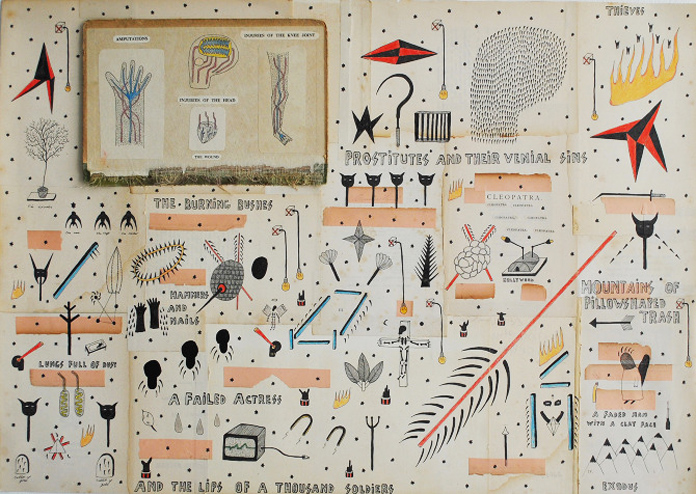 THIEVES
AMPUTATIONS
INJURIES OF THE KNEE JOINT
INJURIES OF THE HEAD
THE WOUND
PROSTITUTES AND THEIR VENIAL SINS
CLEOPATRA
THE BURNING BUSHES
HOLLYWOOD
HAMMERS
AND
NAILS
MOUNTAINS OF
PILLOWSHAPED
TRASH
LUNGS FULL OF DUST
A FAILED ACTRESS
A FADED MAN
WITH A CLAY FACE
AND THE LIPS OF A THOUSAND SOLDIERS
EXODUS